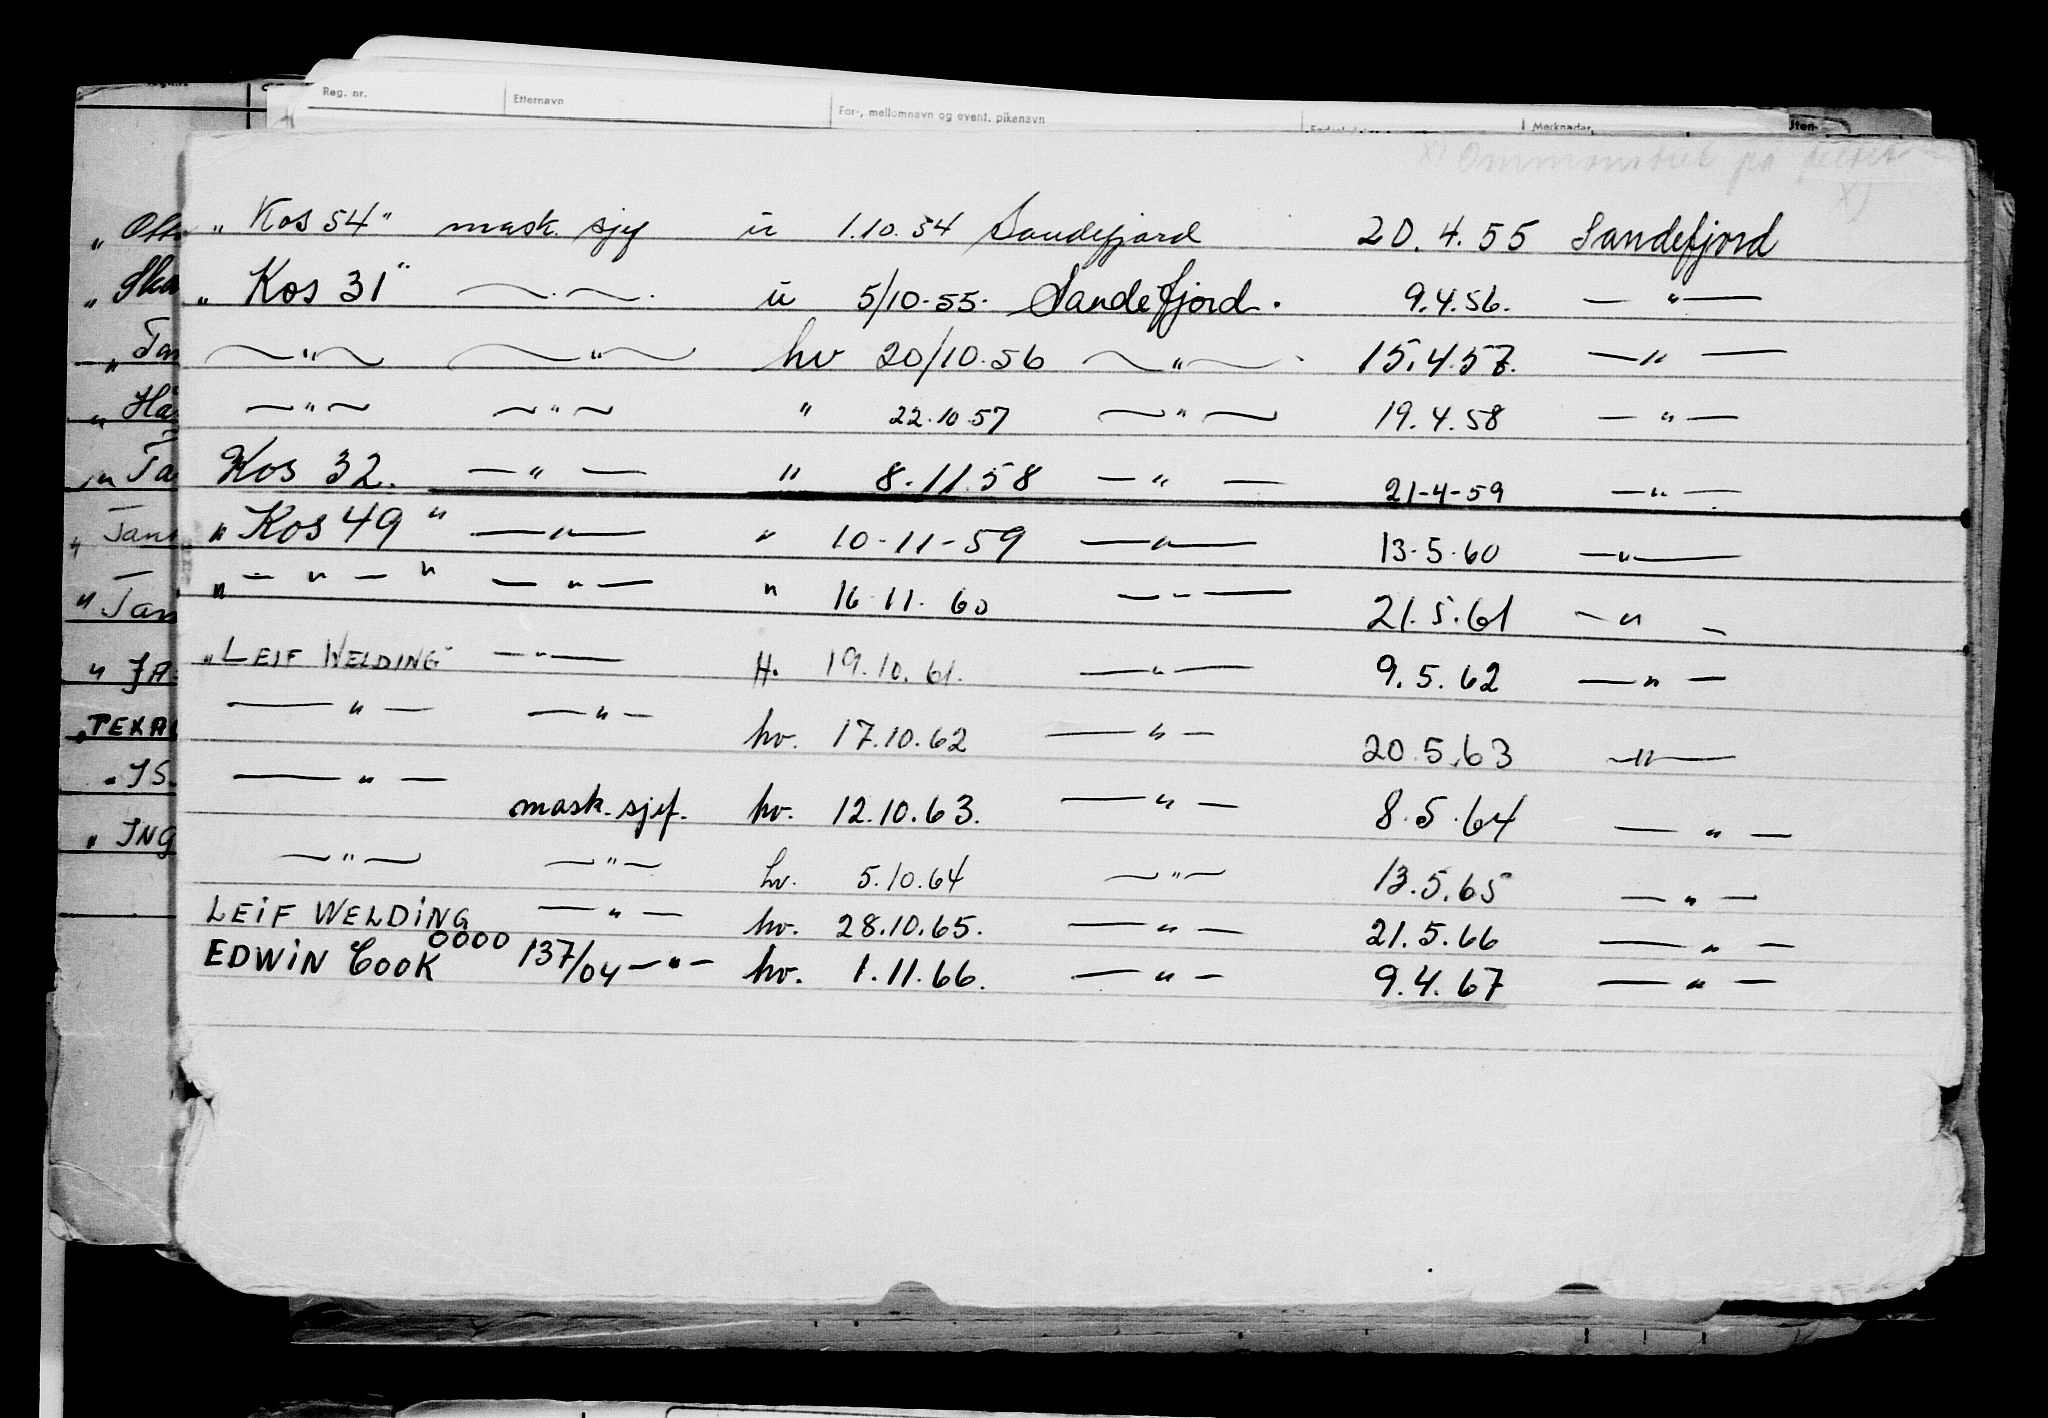 Reg. nr. Etternavn For-, mellomnavn og event. pikenavn Merknader
x) på feltet
x)
„ Kos 54" mask. sjef u 1.10.54 Sandefjord 20.4.55 Sandefjord
„ Kos 31" — — u 5/10-55. Sandefjord. 9.4.56. — " —
— " — — " — hv 20/10.56 — " — 15.4.57. — " —
— " — — " — " 22.10.57 — " — 19.4.58 — " —
Kos 32. — " — " 8.11.58 — " — 21-4-59 — " —
„ Kos 49 " — " — " 10-11-59 — " — 13-5-60 — " —
" — " — " — " — " 16.11.60 — " — 21.5.61 — " —
„ LEIF WELDING" — " — H. 19.10.61. — " — 9.5.62 — " —
— " — — " — hv. 17.10.62 — " — 20.5.63 — " —
— " — mask.sjef. hv. 12.10.63. — " — 8.5.64 — " —
— " — — " — hv. 5.10.64 — " — 13.5.65 — " —
LEIF WELDING — " — hv. 28.10.65. — " — 21.5.66 — " —
EDWIN COOK 0000 137/04 — " — hv. 1.11.66. — " — 9.4.67 — " —